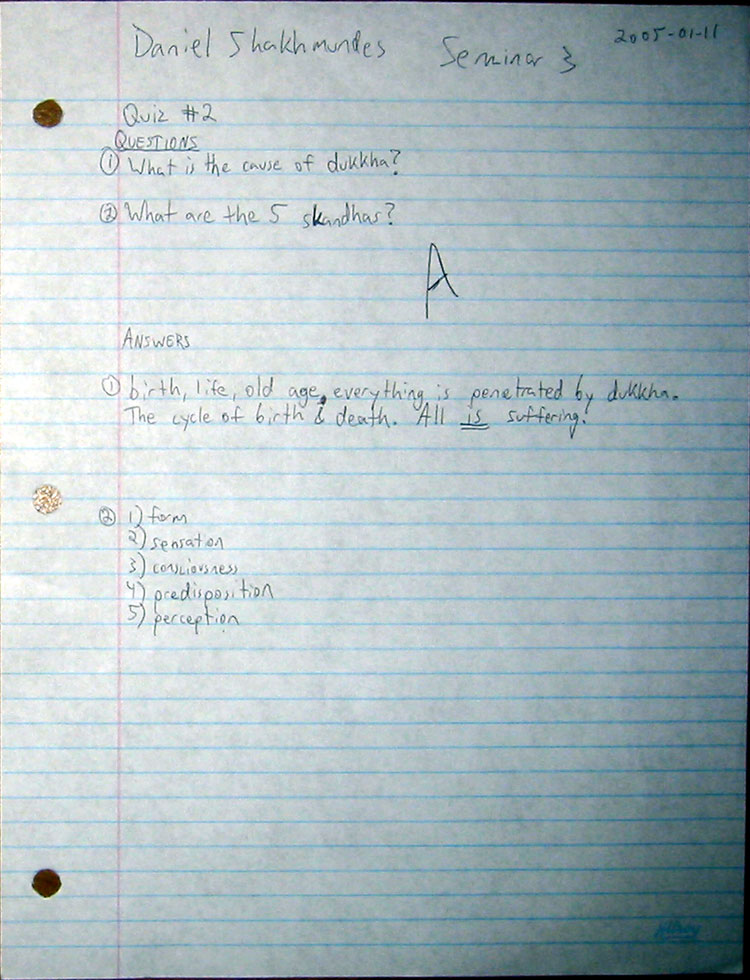 Daniel Shakhmundes Seminar 3 2005-01-11
Quiz #2
QUESTIONS
① What is the cause of dukkha?
② What are the 5 skandhas?
A
ANSWERS
① birth, life, old age, everything is penetrated by dukkha.
The cycle of birth & death. All is suffering!
② 1) form
2) sensation
3) consciousness
4) predisposition
5) perception